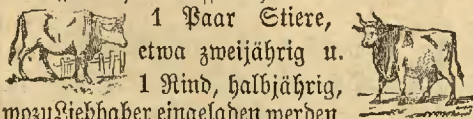 1 Paar Stiere,
etwa zweijährig u.
1 Rind, halbjährig,
wozu Liebhaber eingeladen werden